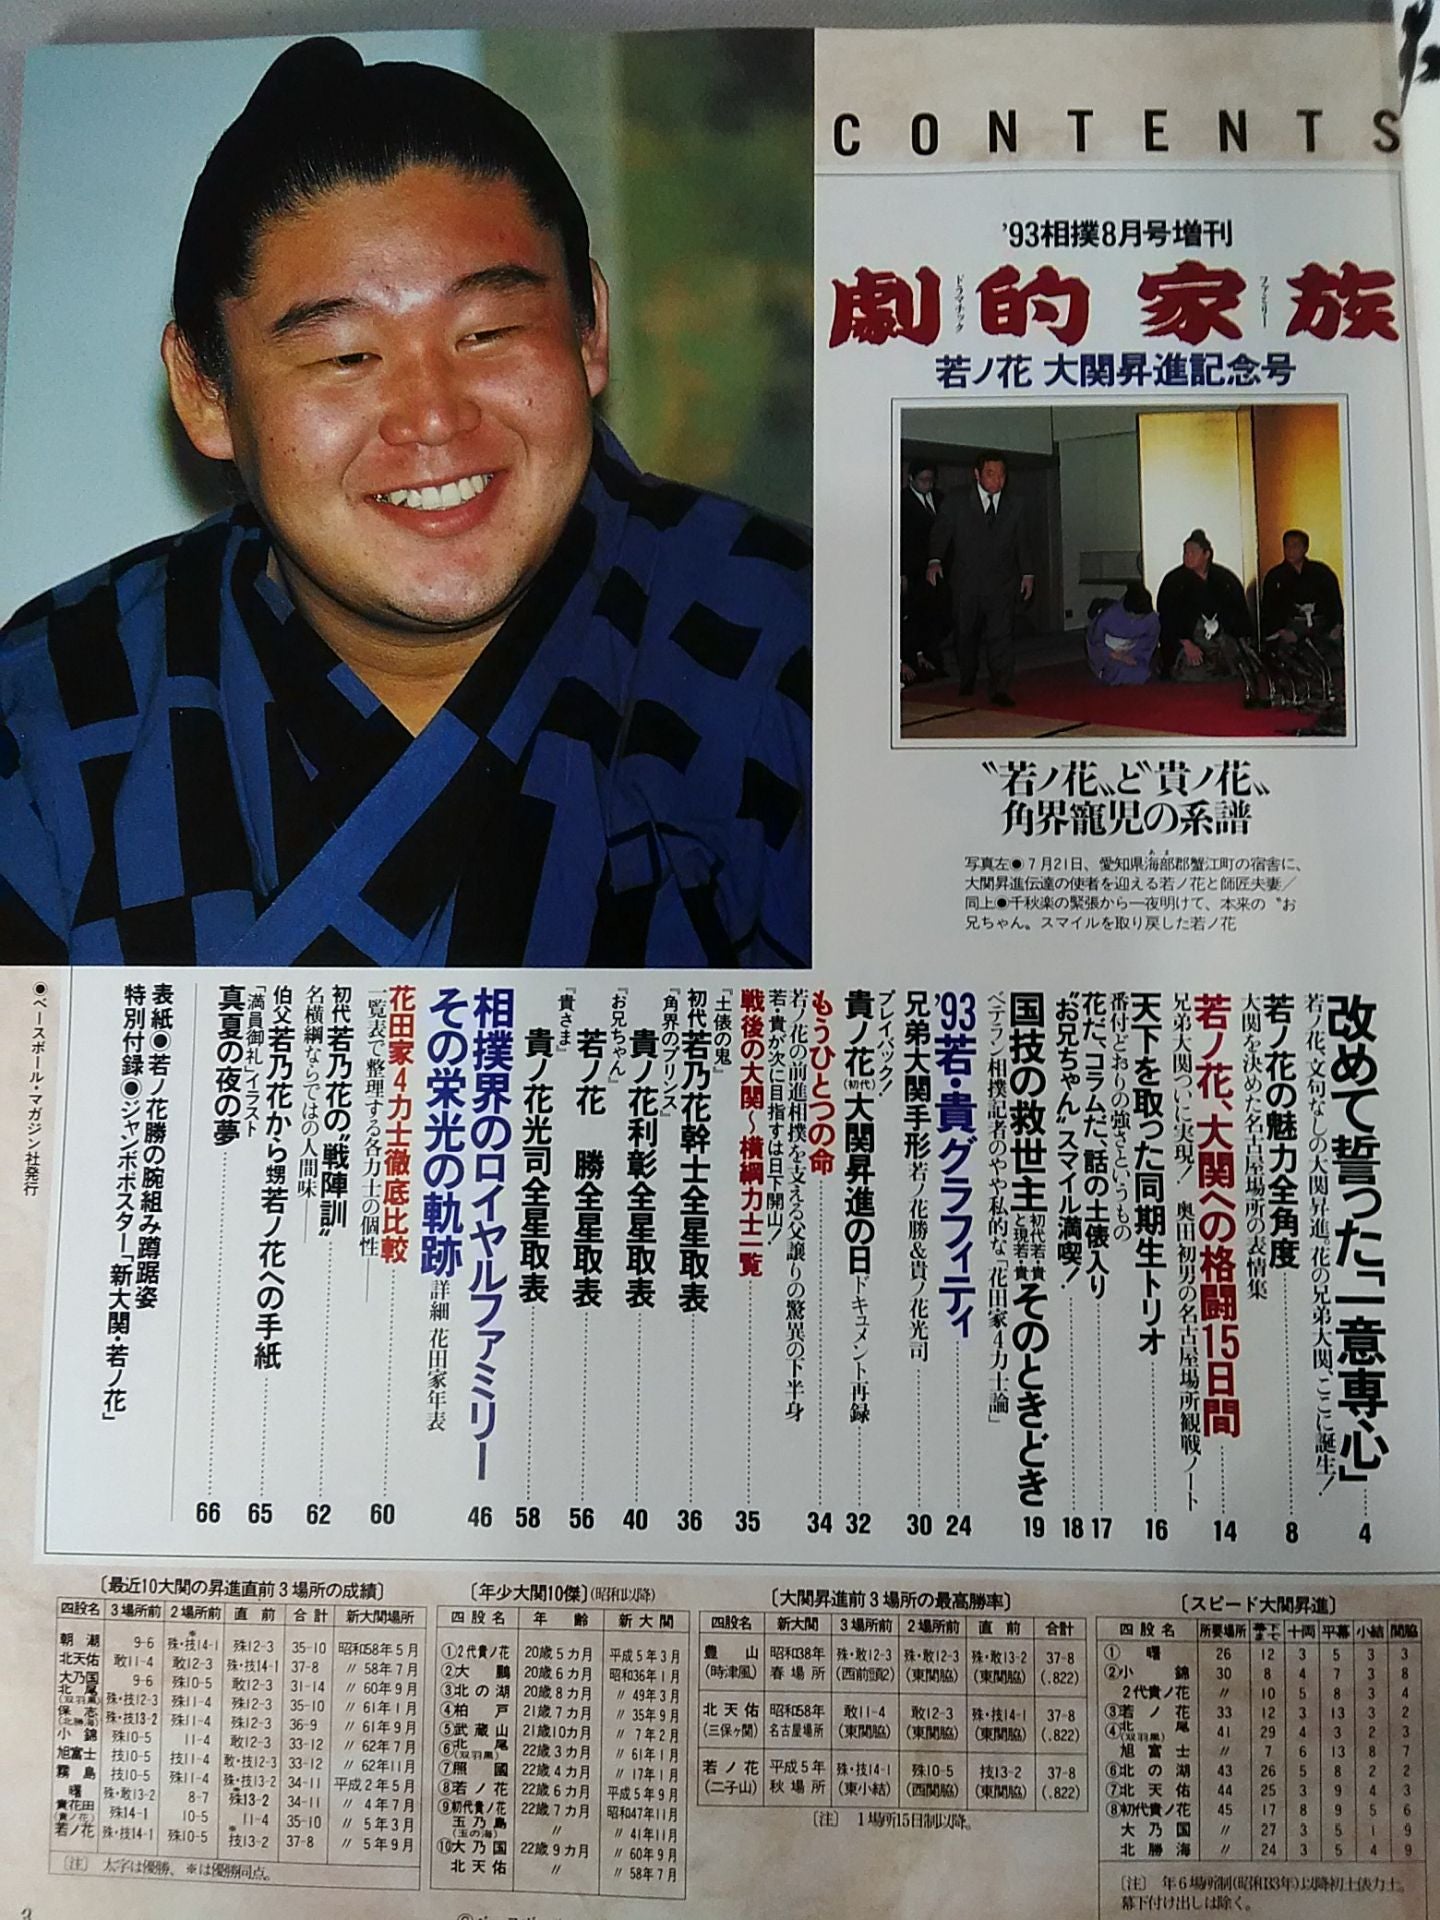 CONTENTS
'93相撲8月号増刊
劇的家族
ドラマチック
ファミリー
若ノ花 大関昇進記念号
〝若ノ花〟と〝貴ノ花〟
角界寵児の系譜
写真左●7月21日、愛知県海部郡蟹江町の宿舎に、
大関昇進伝達の使者を迎える若ノ花と師匠夫妻／
同上●千秋楽の緊張から一夜明けて、本来の〝お
兄ちゃん〟スマイルを取り戻した若ノ花
改めて誓った「一意専心」 4
若ノ花、文句なしの大関昇進。花の兄弟大関、ここに誕生！
若ノ花の魅力全角度 8
大関を決めた名古屋場所の表情集
若ノ花、大関への格闘15日間 14
兄弟大関ついに実現！ 奥田初男の名古屋場所観戦ノート
天下を取った同期生トリオ 16
番付どおりの強さというもの
花だ、コラムだ、話の土俵入り 17
〝お兄ちゃん〟スマイル満喫！ 18
国技の救世主 初代若・貴と現若・貴 そのときどき 19
ベテラン相撲記者のやや私的な「花田家4力士論」
'93若・貴グラフィティ 24
兄弟大関手形 若ノ花勝&貴ノ花光司 30
プレイバック！
貴ノ花(初代)大関昇進の日 ドキュメント再録 32
もうひとつの命 34
若ノ花の前進相撲を支える父譲りの驚異の下半身
若・貴が次に目指すは日下開山！
戦後の大関〜横綱力士一覧 35
『土俵の鬼』
初代若乃花幹士全星取表 36
『角界のプリンス』
貴ノ花利彰全星取表 40
『お兄ちゃん』
若ノ花 勝全星取表 56
『貴さま』
貴ノ花光司全星取表 58
相撲界のロイヤルファミリー
その栄光の軌跡 詳細 花田家年表 46
花田家4力士徹底比較 60
一覧表で整理する各力士の個性
初代若乃花の〝戦陣訓〟 62
名横綱ならではの人間味
伯父若乃花から甥若ノ花への手紙 65
「満員御礼」イラスト
真夏の夜の夢 66
表紙●若ノ花勝の腕組み蹲踞姿
特別付録●ジャンボポスター「新大関・若ノ花」
●ベースボール・マガジン社発行
〔最近10大関の昇進直前3場所の成績〕
四股名 3場所前 2場所前 直前 合計 新大関場所
朝潮 9-6 殊・技14-1 殊12-3 35-10 昭和58年5月
北天佑 敢11-4 敢12-3 殊・技14-1 37-8 〃58年7月
大乃国 9-6 殊10-5 敢12-3 31-14 〃60年9月
北尾(双羽黒) 殊・技12-3 殊11-4 殊12-3 35-10 〃61年1月
保志(北勝海) 殊・技13-2 殊11-4 殊12-3 36-9 〃61年9月
小錦 殊10-5 11-4 敢12-3 33-12 〃62年7月
旭富士 技10-5 技11-4 敢・技12-3 33-12 〃62年11月
霧島 技10-5 殊11-4 殊・技13-2 34-11 平成2年5月
曙 殊・敢13-2 8-7 殊13-2 34-11 〃4年7月
貴花田(貴ノ花) 殊14-1 10-5 11-4 35-10 〃5年3月
若ノ花 殊・技14-1 殊10-5 技13-2 37-8 〃5年9月
〔注〕 太字は優勝、※は優勝同点。
〔年少大関10傑〕(昭和以降)
四股名 年齢 新大関
①2代貴ノ花 20歳5カ月 平成5年3月
②大鵬 20歳6カ月 昭和36年1月
③北の湖 20歳8カ月 〃49年3月
④柏戸 21歳7カ月 〃35年9月
⑤武蔵山 21歳10カ月 〃7年2月
⑥北尾(双羽黒) 22歳3カ月 〃61年1月
⑦照國 22歳4カ月 〃17年1月
⑧若ノ花 22歳6カ月 平成5年9月
⑨初代貴ノ花 22歳7カ月 昭和47年11月
玉乃島(玉の海) 〃 〃41年11月
⑩大乃国 22歳9カ月 〃60年9月
北天佑 〃 〃58年7月
〔大関昇進前3場所の最高勝率〕
四股名 新大関 3場所前 2場所前 直前 合計
豊山 昭和38年 殊・敢12-3 殊・敢12-3 殊・敢13-2 37-8
(時津風) 春場所 (西前頭2) (東関脇) (東関脇) (.822)
北天佑 昭和58年 敢11-4 敢12-3 殊・技14-1 37-8
(三保ヶ関) 名古屋場所 (東関脇) (東関脇) (東関脇) (.822)
若ノ花 平成5年 殊・技14-1 殊10-5 技13-2 37-8
(二子山) 秋場所 (東小結) (西関脇) (東関脇) (.822)
〔注〕 1場所15日制以降。
〔スピード大関昇進〕
四股名 所要場所 幕下まで 十両 平幕 小結 関脇
①曙 26 12 3 5 3 3
②小錦 30 8 4 7 3 8
2代貴ノ花 〃 10 5 8 3 4
③若ノ花 33 12 3 13 3 2
④北尾(双羽黒) 41 29 4 3 2 3
旭富士 〃 7 6 13 8 7
⑥北の湖 43 26 5 8 2 2
⑦北天佑 44 25 3 9 4 3
⑧初代貴ノ花 45 17 8 9 5 6
大乃国 〃 27 3 5 1 9
北勝海 〃 24 3 5 4 9
〔注〕 年6場所制(昭和33年)以降初土俵力士。
幕下付け出しは除く。
3